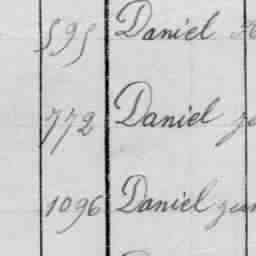 595 Daniel
772 Daniel
1096 Daniel